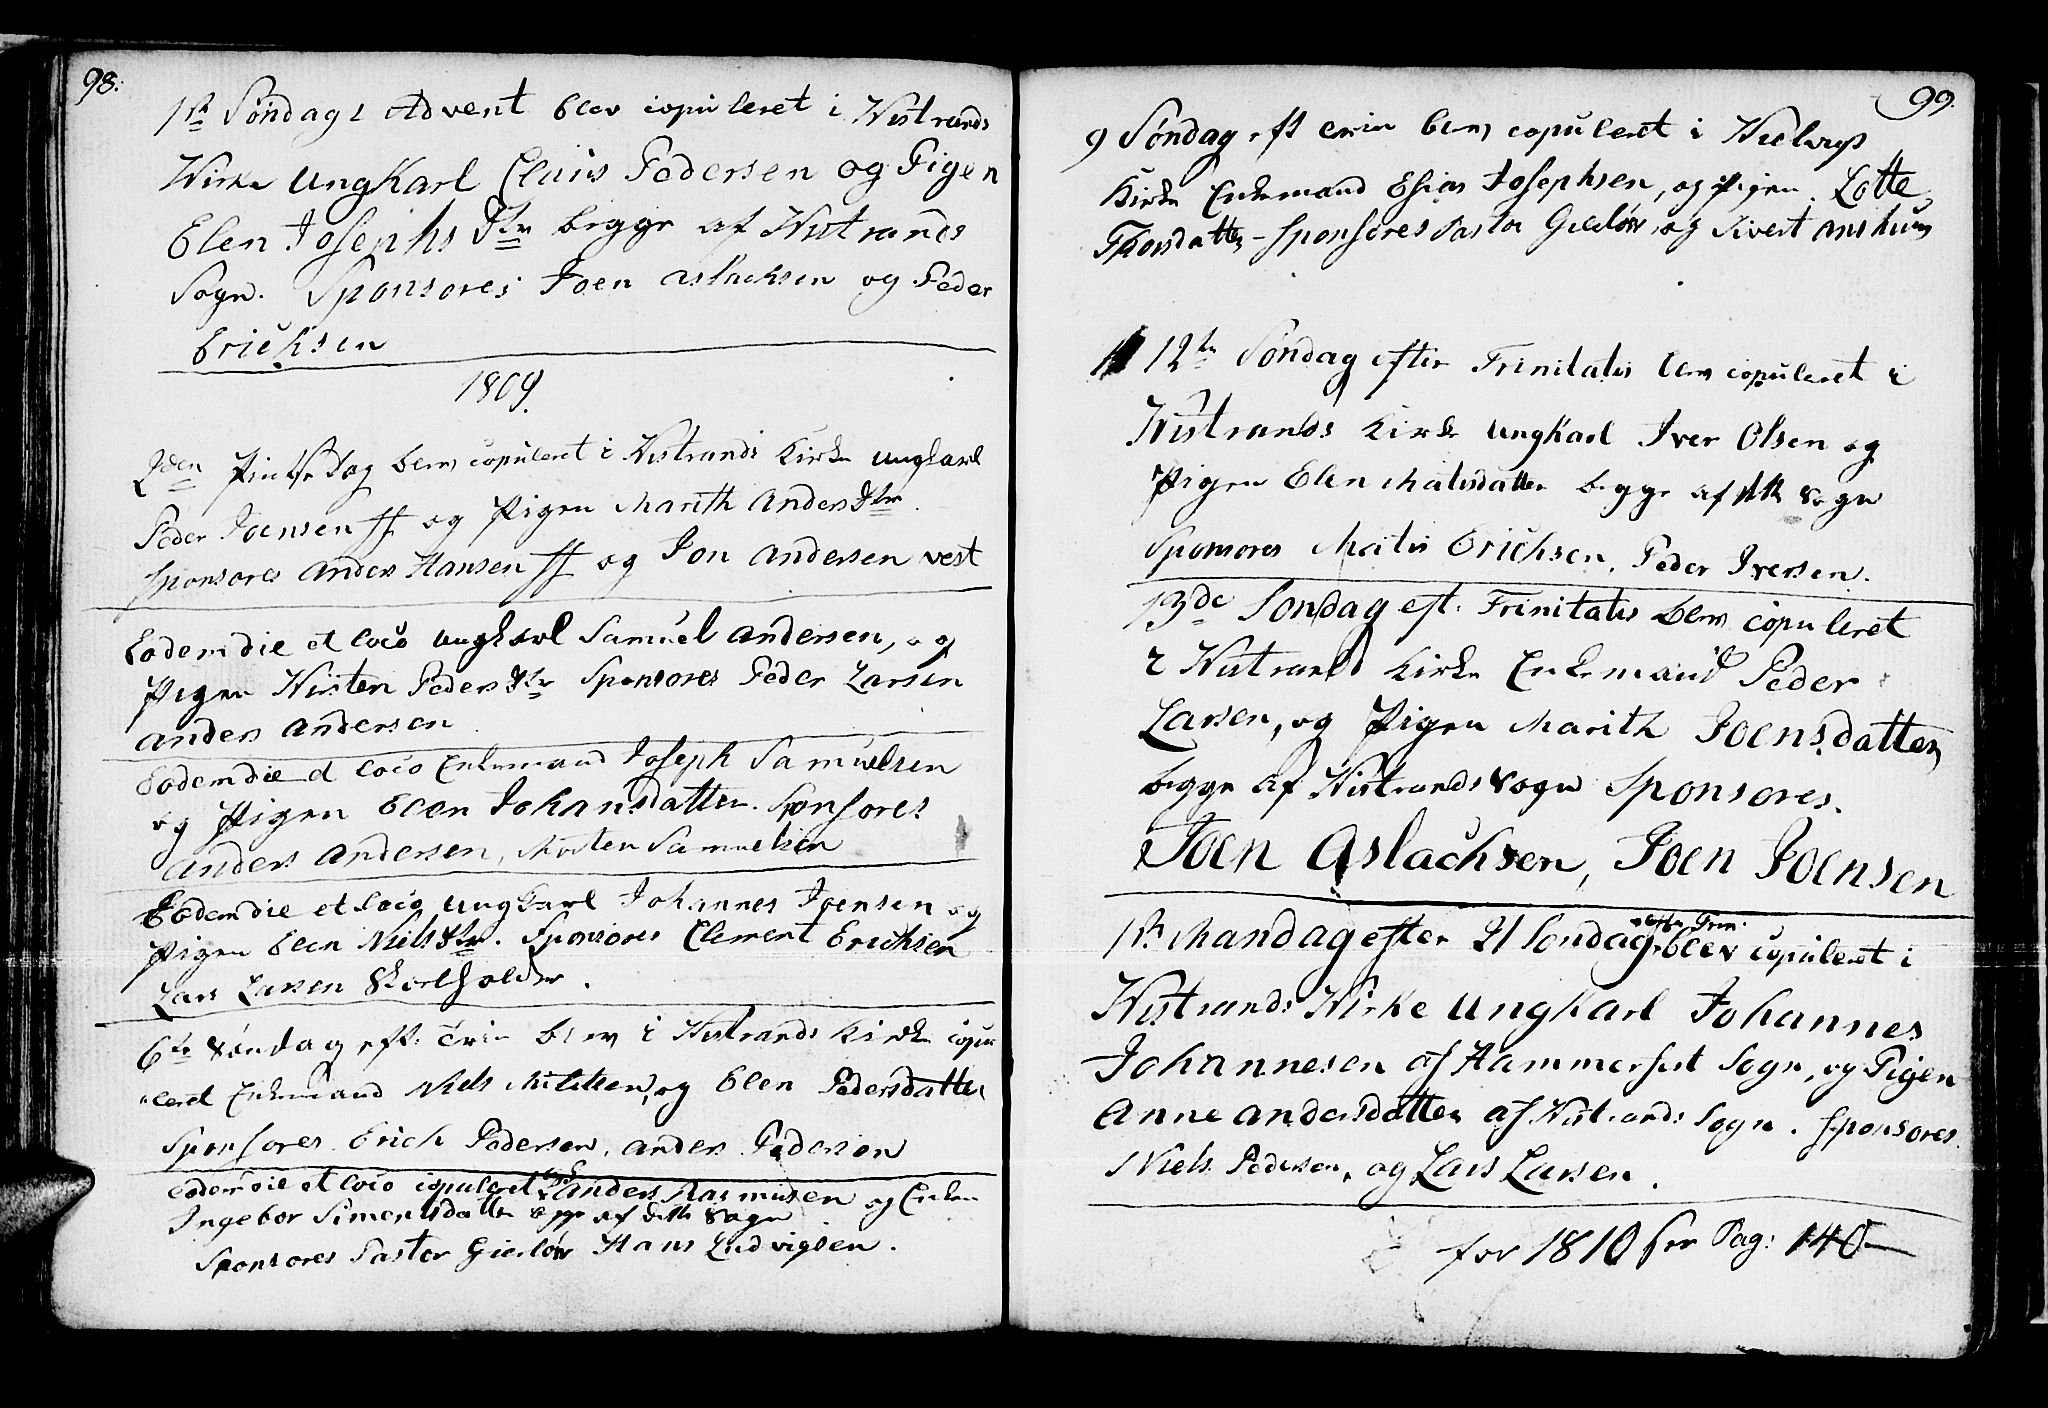 98.
1ste Søndag i Advent blev copuleret i Kistrands
Kirke Ungkarl Claus Pedersen og Pigen
Elen Josephs Dtr begge af Kistrands
Sogn. Sponsores Joen Aslachsen og Peder
Erichsen
1809.
2den Pintsedag blev copuleret i Kistrands Kirke ungkarl
Peder Joensen og Pigen Marith Anders Dtr.
Sponsores Anders Hansen og Jon Andersen vest
Eodem die et loco ungkarl Samuel Andersen, og
Pigen Kirsten Peders Dtr Sponsores Peder Larsen
Anders Andersen
Eodem die et loco Enkemand Joseph Samuelsen
og Pigen Elen Johansdatter. Sponsores
Anders Andersen, Morten Samuelsen
Eodem die et loco ungkarl Johannes Joensen og
Pigen Elen Niels Dtr. Sponsores Clement Erichsen
Lars Larsen Skoelholder.
6te Søndag eft. Trin blev i Kistrands Kirke copu
leret Enkemand Niels Mikelsen, og Elen Pedersdatter
Sponsores Erich Pedersen, Anders Pedersen
eodem die et loco copuleret Anders Rasmusen og Enken
Ingebor Simonsdatter begge af dette Sogn
Sponsores Pastor Gierløw Hans Ludvigsen.
99.
9 Søndag eft Trin blev copuleret i Kielvigs
Kirke Enkemand Esias Josephsen, og Pigen Lotte
Thorsdatter - Sponsores Pastor Gierløw og Sivert
12te Søndag efter Trinitatis blev copuleret i
Kistrands Kirke ungkarl Iver Olsen og
Pigen Elen Matisdatter begge af dette Sogn
Sponsores Matis Erichsen, Peder Iversen.
13de Søndag eft. Trinitatis blev copuleret
i Kistrand Kirke Enkemand Peder
Larsen, og Pigen Marith Joensdatter
begge af Kistrands Sogn Sponsores.
Joen Aslachsen, Joen Joensen
1ste Mandag efter 21 Søndag efter Trin. blev copuleret i
Kistrands Kirke Ungkarl Johannes
Johannesen af Hammerfest Sogn, og Pigen
Anne Andersdatter af Kistrands Sogn. Sponsores
Niels Pedersen, og Lars Larsen.
for 1810 see Pag: 140